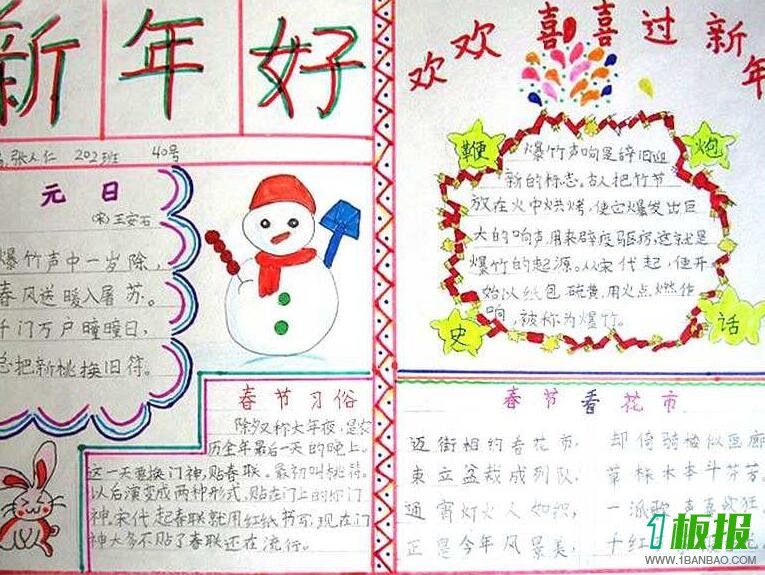 新年好
张人仁 202班 40号
元日
(宋)王安石
爆竹声中一岁除，
春风送暖入屠苏。
千门万户曈曈日，
总把新桃换旧符。
春节习俗
除夕又称大年夜，是农
历全年最后一天的晚上。
这一天要换门神，贴春联。最初叫桃符。
以后演变成两种形式，贴在门上的你门
神。宋代起春联就用红纸书写，现在门
神大多不贴了春联还在流行。
欢欢喜喜过新年
鞭炮史话
爆竹声响是辞旧迎
新的标志。古人把竹节
放在火中烘烤，使它爆发出巨
大的响声用来辟疫驱病，这就是
爆竹的起源。从宋代起，便开
始以纸包硫黄，用火点燃作
响，被称为爆竹。
春节看花市
迈街相约看花市，
却倚骑楼似画廊
束立盆栽成列队，
草株木本斗芬芳
通宵灯火人如织，
一派歌声喜欲狂
正是今年风景美，
千红
1板报
WWW.1BANBAO.COM